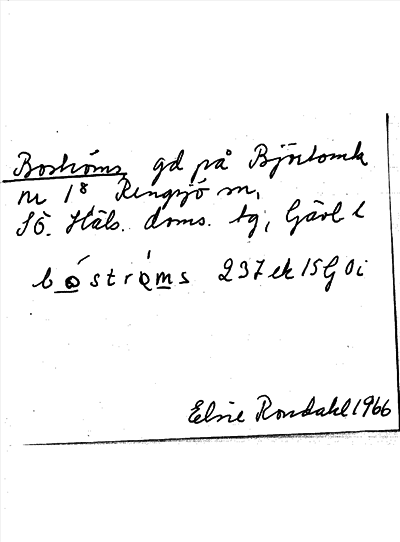 Boströms, gd på Björktomta
nr 1⁸, Rengsjö sn,
Sö. Häls. doms. tg, Gävl l
bó̲stro̲̍m̲s 237 ek 15G 0i
Elsie Rondahl 1966